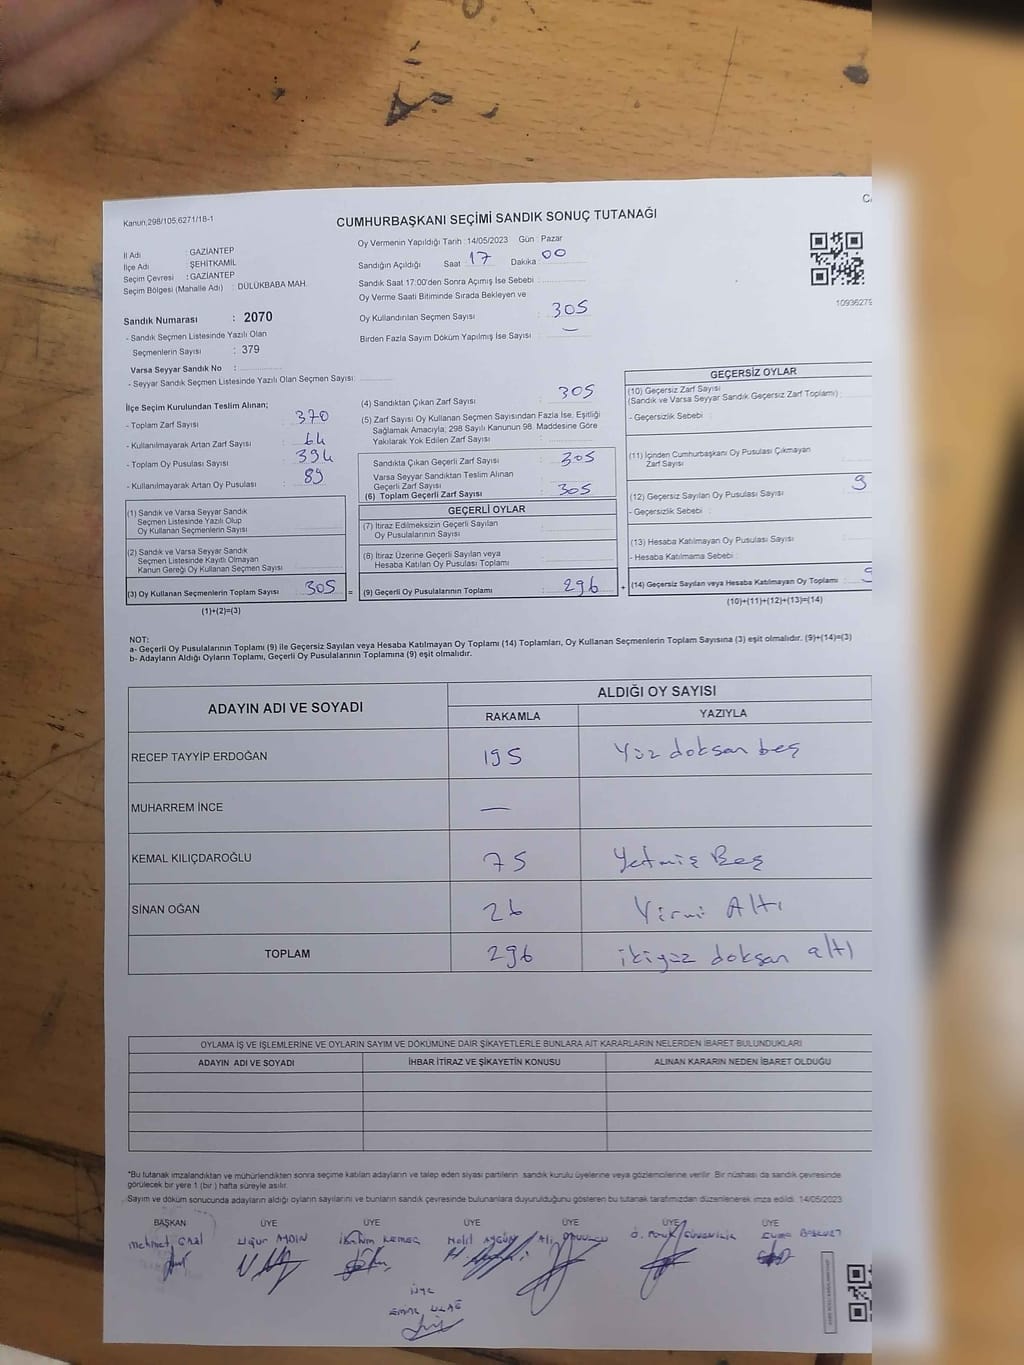 Kanun,298/105,6271/18-1
CUMHURBAŞKANI SEÇİMİ SANDIK SONUÇ TUTANAĞI
İl Adı : GAZİANTEP
İlçe Adı : ŞEHİTKAMİL
Seçim Çevresi : GAZİANTEP
Seçim Bölgesi (Mahalle Adı) : DÜLÜKBABA MAH.
Sandık Numarası : 2070
- Sandık Seçmen Listesinde Yazılı Olan
Seçmenlerin Sayısı : 379
Varsa Seyyar Sandık No :
- Seyyar Sandık Seçmen Listesinde Yazılı Olan Seçmen Sayısı:
Oy Vermenin Yapıldığı Tarih :14/05/2023 Gün : Pazar
Sandığın Açıldığı Saat 17 Dakika : 00
Sandık Saat 17:00'den Sonra Açımış İse Sebebi :
Oy Verme Saati Bitiminde Sırada Bekleyen ve
Oy Kullandırılan Seçmen Sayısı : 305
Birden Fazla Sayım Döküm Yapılmış İse Sayısı : —
10936279
İlçe Seçim Kurulundan Teslim Alınan;
- Toplam Zarf Sayısı : 370
- Kullanılmayarak Artan Zarf Sayısı : 64
- Toplam Oy Pusulası Sayısı : 394
- Kullanılmayarak Artan Oy Pusulası : 89
(1) Sandık ve Varsa Seyyar Sandık
Seçmen Listesinde Yazılı Olup
Oy Kullanan Seçmenlerin Sayısı
(2) Sandık ve Varsa Seyyar Sandık
Seçmen Listesinde Kayıtlı Olmayan
Kanun Gereği Oy Kullanan Seçmen Sayısı :
(3) Oy Kullanan Seçmenlerin Toplam Sayısı : 305 =
(1)+(2)=(3)
(4) Sandıktan Çıkan Zarf Sayısı : 305
(5) Zarf Sayısı Oy Kullanan Seçmen Sayısından Fazla İse, Eşitliği
Sağlamak Amacıyla; 298 Sayılı Kanunun 98. Maddesine Göre
Yakılarak Yok Edilen Zarf Sayısı :
Sandıkta Çıkan Geçerli Zarf Sayısı : 305
Varsa Seyyar Sandıktan Teslim Alınan
Geçerli Zarf Sayısı :
(6) Toplam Geçerli Zarf Sayısı : 305
GEÇERLİ OYLAR
(7) İtiraz Edilmeksizin Geçerli Sayılan
Oy Pusulalarının Sayısı :
(8) İtiraz Üzerine Geçerli Sayılan veya
Hesaba Katılan Oy Pusulası Toplamı :
(9) Geçerli Oy Pusulalarının Toplamı : 296 +
GEÇERSİZ OYLAR
(10) Geçersiz Zarf Sayısı
(Sandık ve Varsa Seyyar Sandık Geçersiz Zarf Toplamı) :
- Geçersizlik Sebebi :
(11) İçinden Cumhurbaşkanı Oy Pusulası Çıkmayan
Zarf Sayısı
(12) Geçersiz Sayılan Oy Pusulası Sayısı : 9
- Geçersizlik Sebebi :
(13) Hesaba Katılmayan Oy Pusulası Sayısı :
- Hesaba Katılmama Sebebi :
(14) Geçersiz Sayılan veya Hesaba Katılmayan Oy Toplamı : 9
(10)+(11)+(12)+(13)=(14)
NOT:
a- Geçerli Oy Pusulalarının Toplamı (9) ile Geçersiz Sayılan veya Hesaba Katılmayan Oy Toplamı (14) Toplamları, Oy Kullanan Seçmenlerin Toplam Sayısına (3) eşit olmalıdır. (9)+(14)=(3)
b- Adayların Aldığı Oyların Toplamı, Geçerli Oy Pusulalarının Toplamına (9) eşit olmalıdır.
ADAYIN ADI VE SOYADI
ALDIĞI OY SAYISI
RAKAMLA YAZIYLA
RECEP TAYYİP ERDOĞAN 195 Yüz doksan beş
MUHARREM İNCE —
KEMAL KILIÇDAROĞLU 75 Yetmiş Beş
SİNAN OĞAN 26 Yirmi Altı
TOPLAM 296 ikiyüz doksan altı
OYLAMA İŞ VE İŞLEMLERİNE VE OYLARIN SAYIM VE DÖKÜMÜNE DAİR ŞİKAYETLERLE BUNLARA AİT KARARLARIN NELERDEN İBARET BULUNDUKLARI
ADAYIN ADI VE SOYADI İHBAR İTİRAZ VE ŞİKAYETİN KONUSU ALINAN KARARIN NEDEN İBARET OLDUĞU
*Bu tutanak imzalandıktan ve mühürlendikten sonra seçime katılan adayların ve talep eden siyasi partilerin sandık kurulu üyelerine veya gözlemcilerine verilir. Bir nüshası da sandık çevresinde
görülecek bir yere 1 (bir) hafta süreyle asılır.
Sayım ve döküm sonucunda adayların aldığı oyların sayılarını ve bunların sandık çevresinde bulunanlara duyurulduğunu gösteren bu tutanak tarafımızdan düzenlenerek imza edildi. 14/05/2023
BAŞKAN ÜYE ÜYE ÜYE ÜYE ÜYE ÜYE
Mehmet Uğur AYDIN İbrahim Halil AYGÜN Ali Ö. Faruk
ÜYE